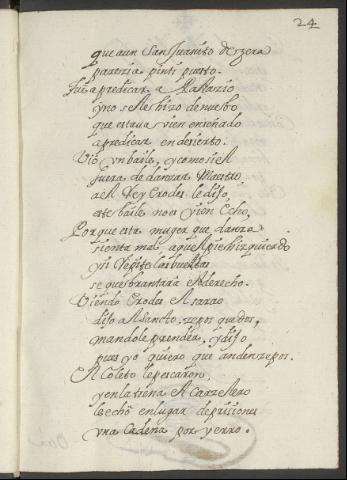 24
que aun San Juanito de zera
parezia pinti puesto.
Fue a predicar a Palazio
y no se le hizo de nuebo
que estava vien enseñado
a predicar en desierto.
Vio vn baile, y como si el
fuera de danzar Maestro
a el Rey Erodes le dijo
este baile no va vien echo,
Porque esta muger que danza
sienta mas aquel pie hizquierdo
y si repite las bueltas
se quebrantara el derecho.
Viendo Erodes el sarao
dijo a el sancto. zepos quedos,
mandole prender, y dijo
pues yo quiero que anden zepos.
Al Coleto le pescaron,
y en la trena el Carzelero
le echò en lugar de prisiones
vna Cadena por yerro.